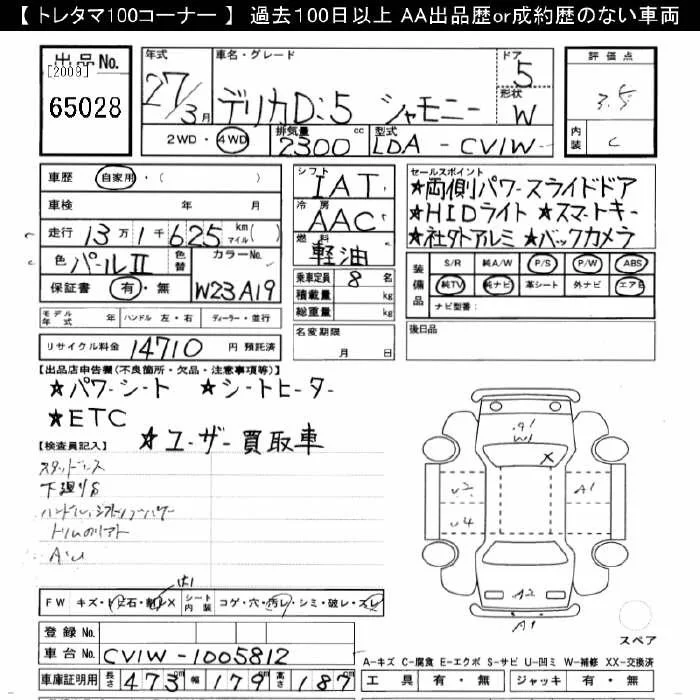 【 トレタマ100コーナー 】 過去100日以上 AA出品歴or成約歴のない車両
出品No.
[2009]
65028
年式 車名・グレード ドア 評価点
27/3月 デリカD:5 シャモニー 5 3.5
形状 W
2WD・4WD 排気量 2300 cc 型式 LDA - CV1W 内装 C
車歴 自家用・( ) シフト IAT セールスポイント
車検 年 月 冷房 AAC ★両側パワースライドドア
走行 13万1千625 km マイル( ) 燃料 軽油 ★HIDライト ★スマートキー
色 パールII 色替 カラーNo. W23A19 ★社外アルミ ★バックカメラ
保証書 有・無 乗車定員 8 名
積載量 kg
総重量 kg
装備品 S/R 純A/W P/S P/W ABS
純TV 純ナビ 革シート 外ナビ エアB
ナビ型番:
モデル年式 年 ハンドル 左・右 ディーラー・並行 名変期限 月 日 後日品
リサイクル料金 14710 円 預託済
【出品店申告欄(不良箇所・欠品・注意事項等)】
★パワーシート ★シートヒーター
★ETC
★ユーザー買取車
【検査員記入】
スタッドレス
下廻りS
A1
W1
X
U2
U4
A1
A2
A1
スペア
FW キズ・ヒビ石・割レX シート内装 コゲ・穴・汚レ・シミ・破レ・スレ
登録No.
車台No. CV1W-1005812
車庫証明用 長さ 473 cm 幅 179 cm 高さ 187 cm
A-キズ C-腐食 E-エクボ S-サビ U-凹ミ W-補修 XX-交換済
工具 有・無 ジャッキ 有・無